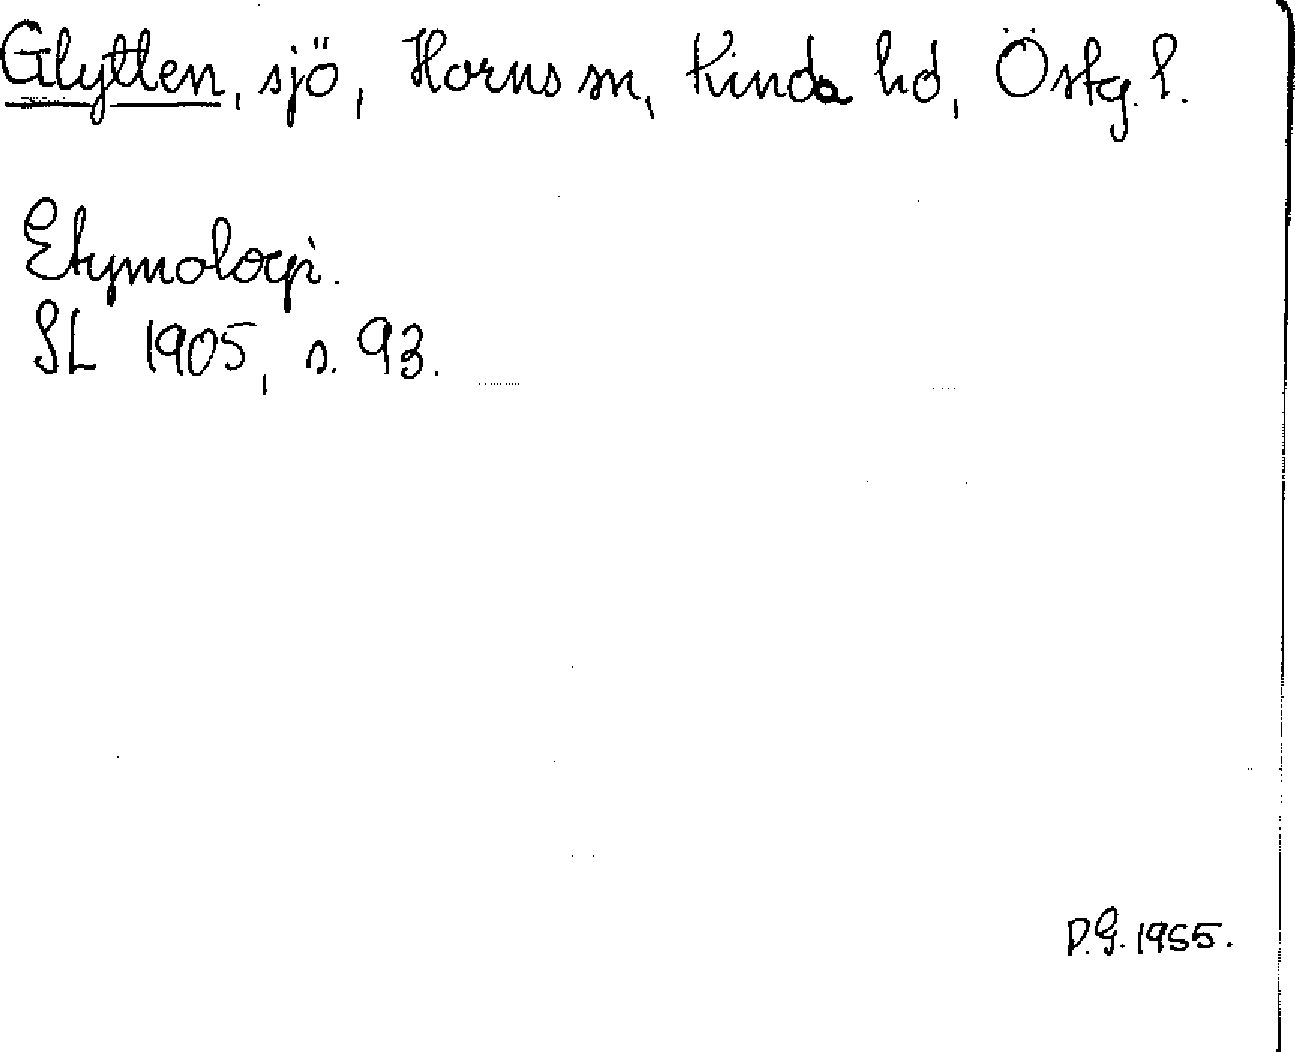 Glytten, sjö, Horns sn, Kinda hd, Östg. l.
Etymologi.
SL 1905, s. 93.
D.G. 1955.